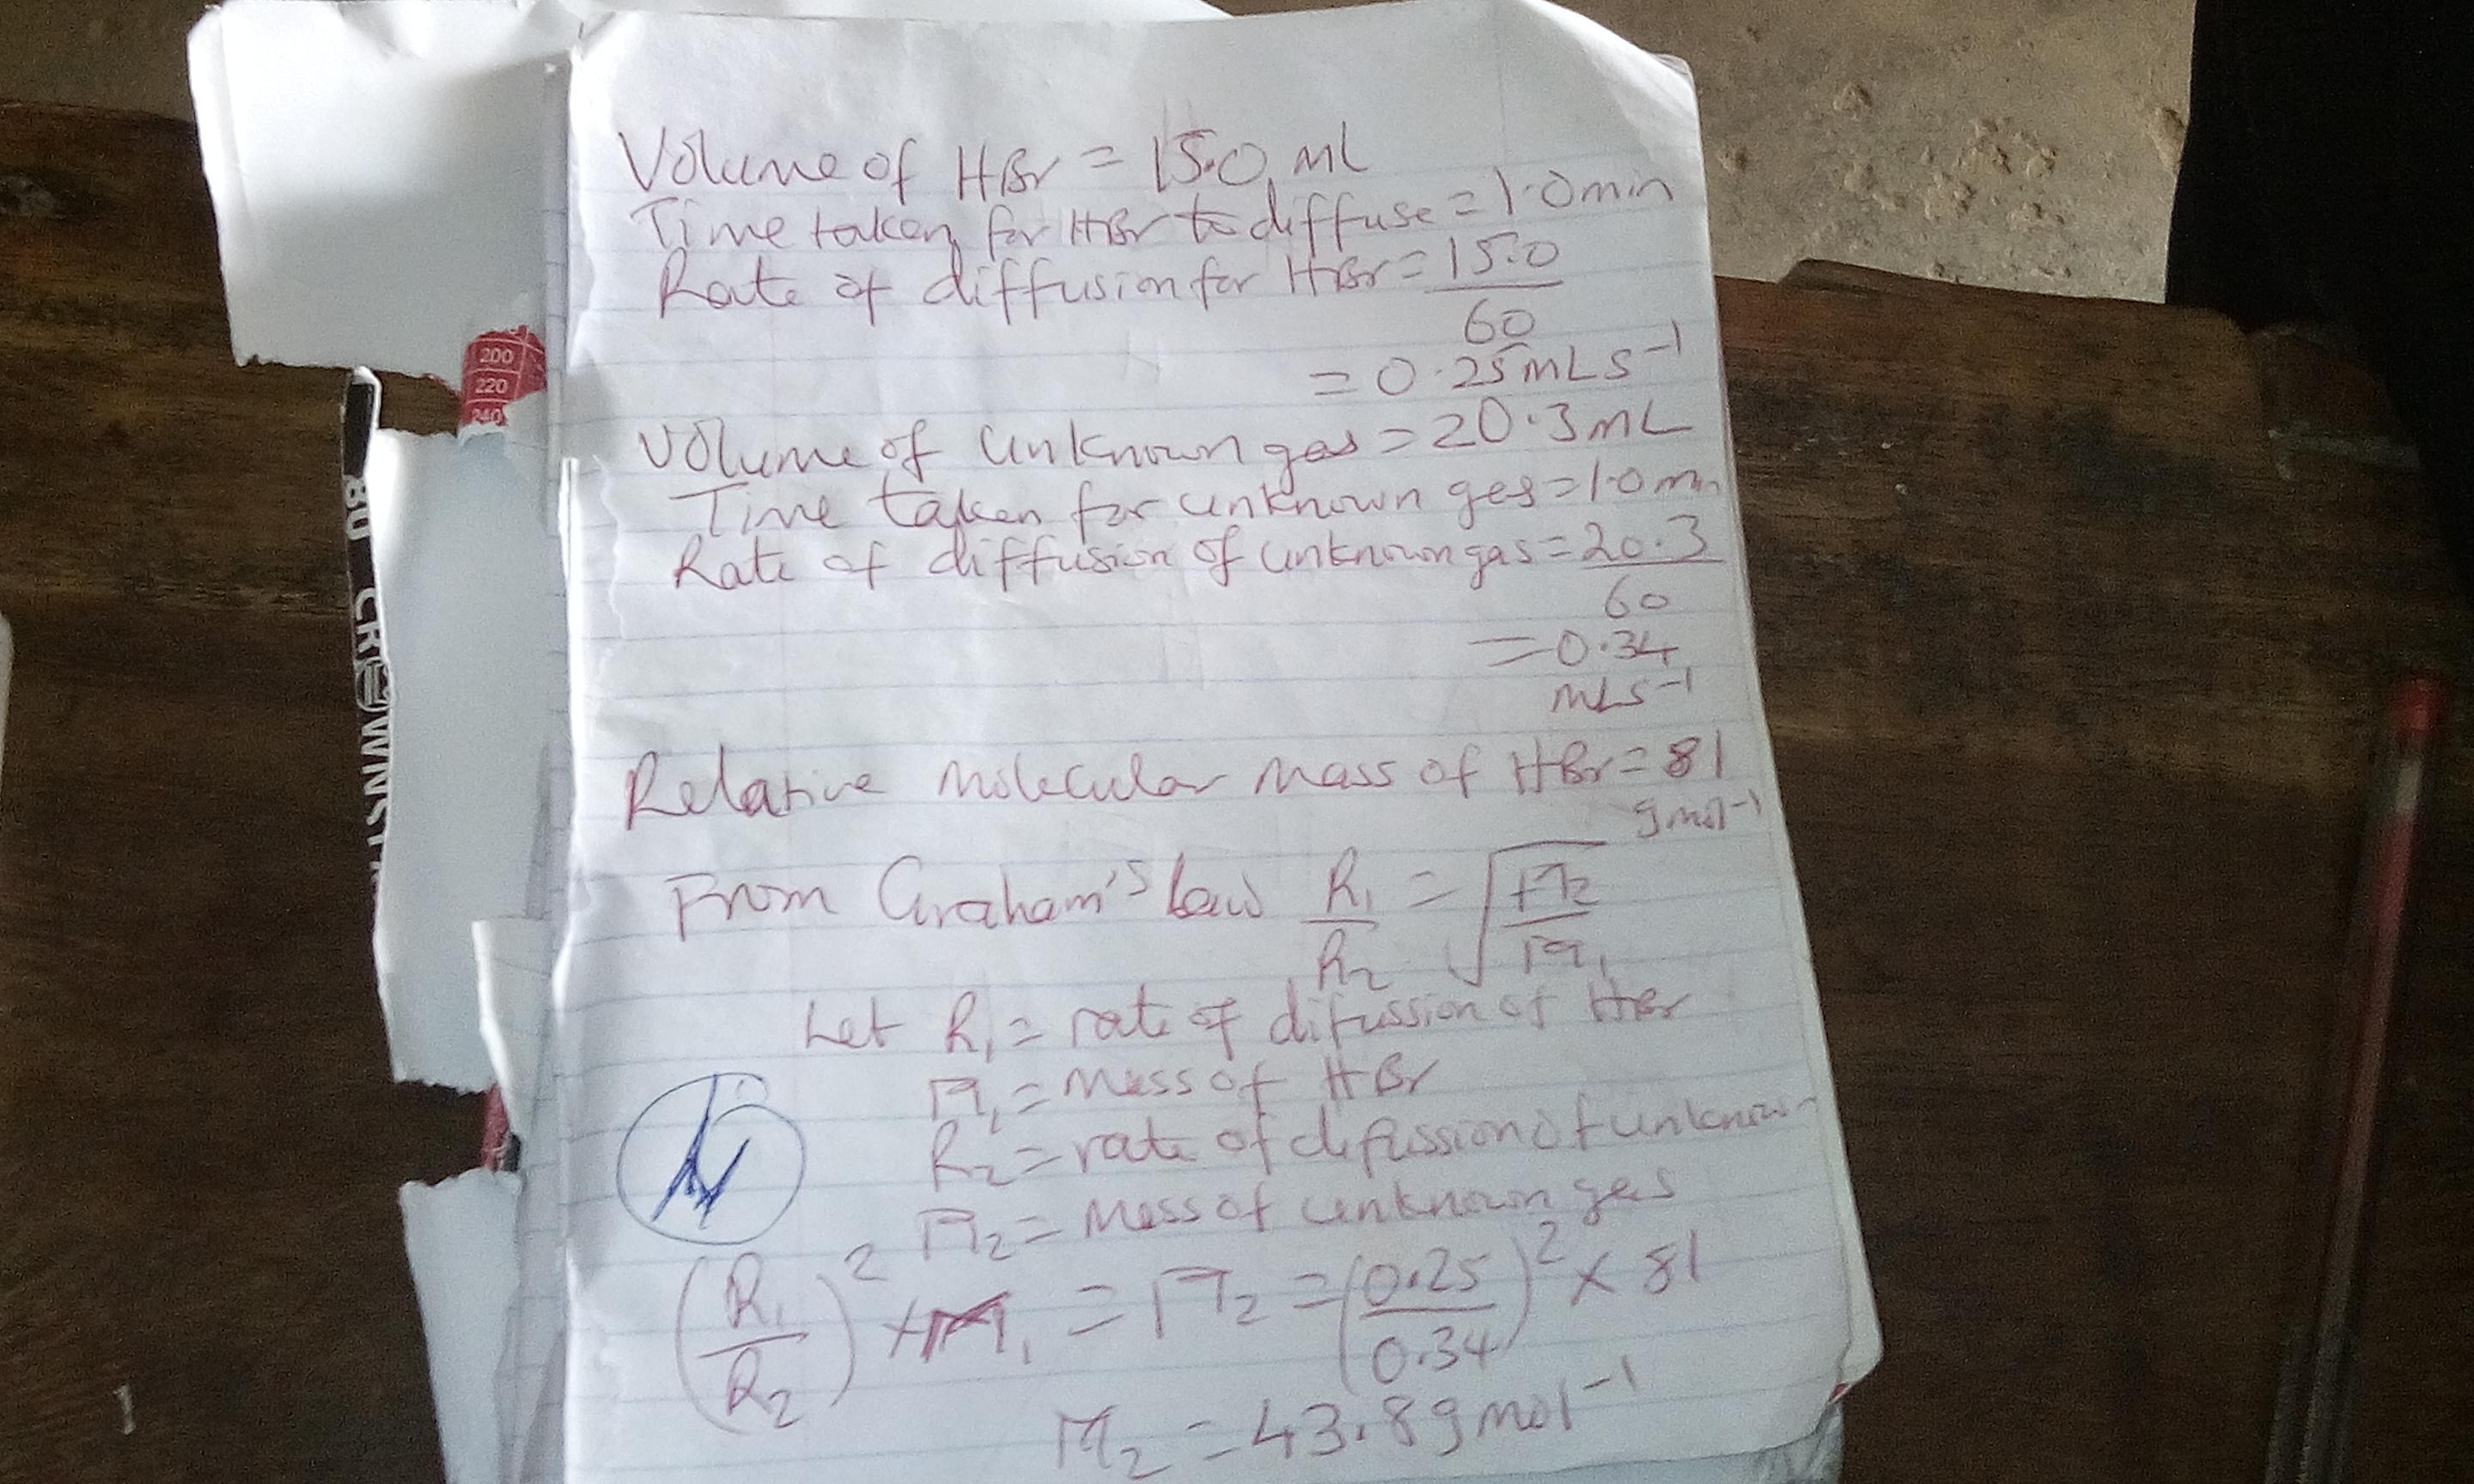 Volume of HBr = 15.0 mL
Time taken for HBr to diffuse = 1.0min
Rate of diffusion for HBr = 15.0
60
= 0.25mLs⁻¹
Volume of unknown gas = 20.3mL
Time taken for unknown ges = 1.0min
Rate of diffusion of unknown gas = 20.3
60
= 0.34
mLs⁻¹
Relative molecular mass of HBr = 81
gmol⁻¹
From Graham's law R₁/R₂ = √(M₂/M₁)
Let R₁ = rate of difussion of HBr
M₁ = Mass of HBr
R₂ = rate of difussion of unknown
M₂ = Mass of unknown ges
(R₁/R₂)² × M₁ = M₂ = (0.25/0.34)² × 81
M₂ = 43.8gmol⁻¹
200
220
240